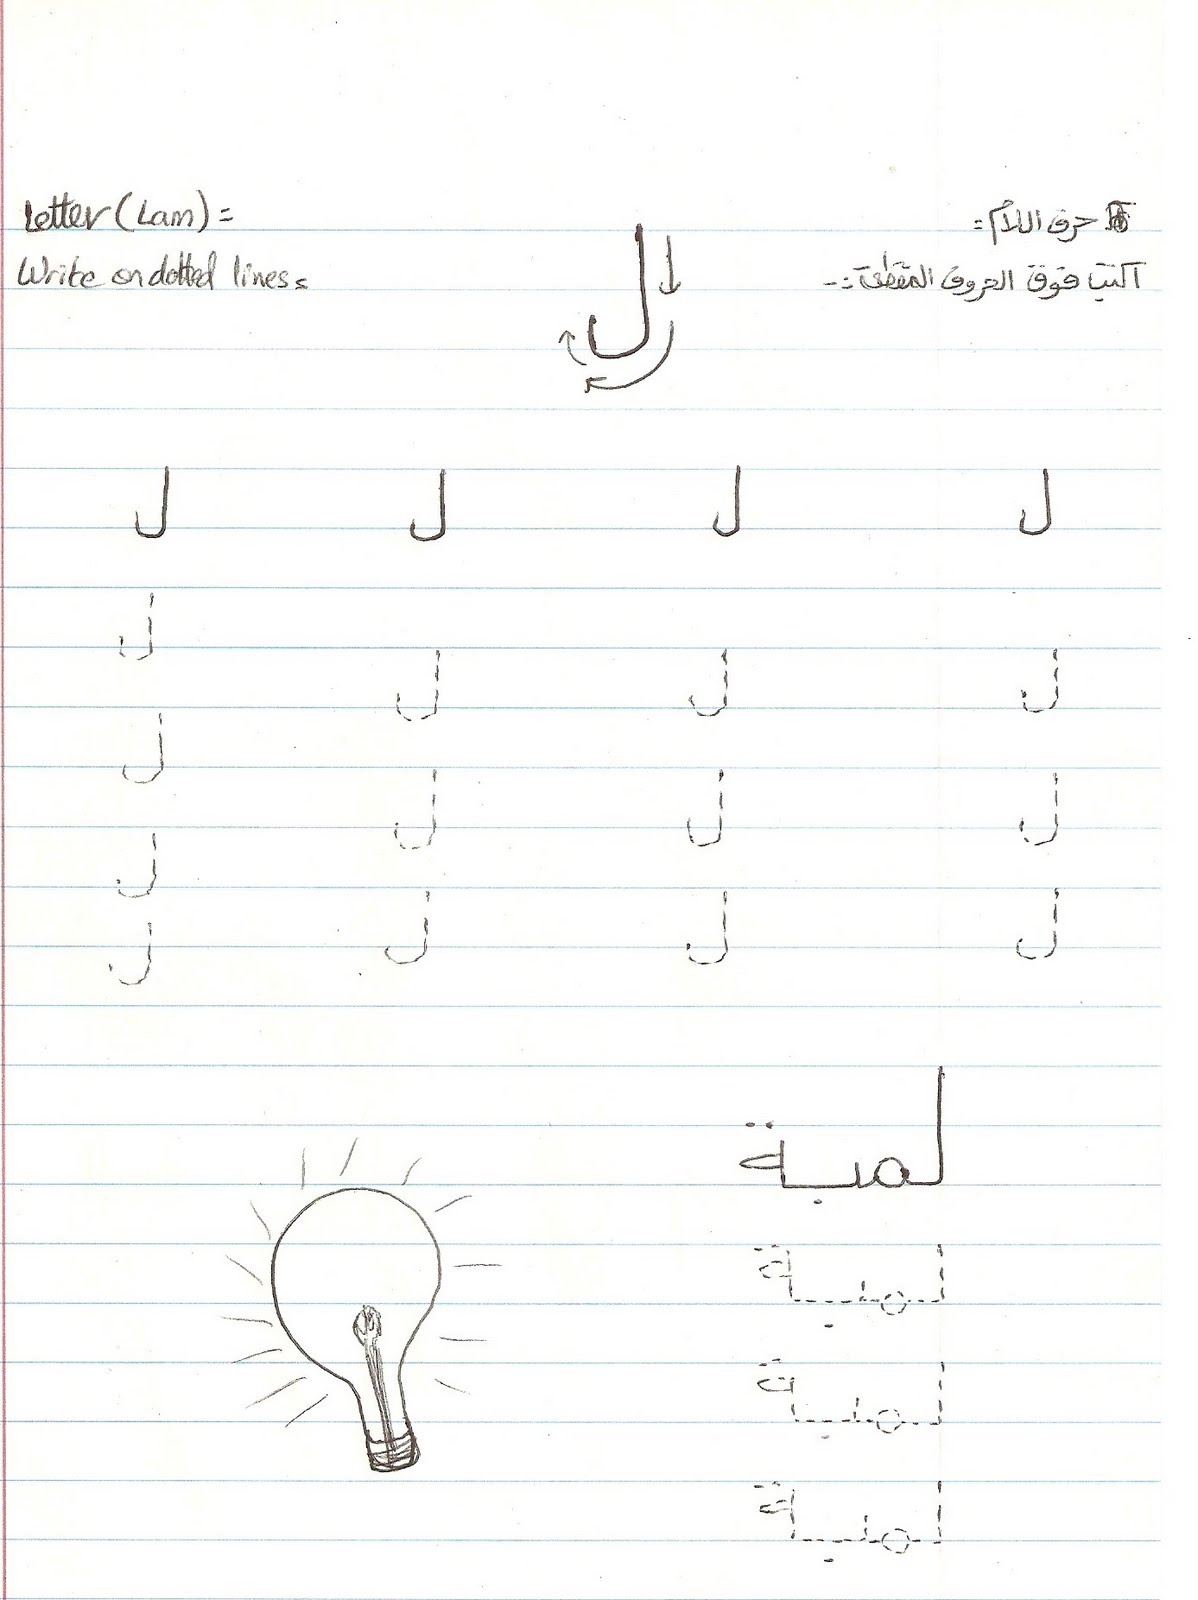 Letter (Lam) =
حرف اللام =
Write on dotted lines =
اكتب فوق الحروف المقطعة :-
ل
ل ل ل ل
ل
ل ل ل
ل
ل ل ل
ل
ل ل ل ل
لمبة
لمبة
لمبة
لمبة